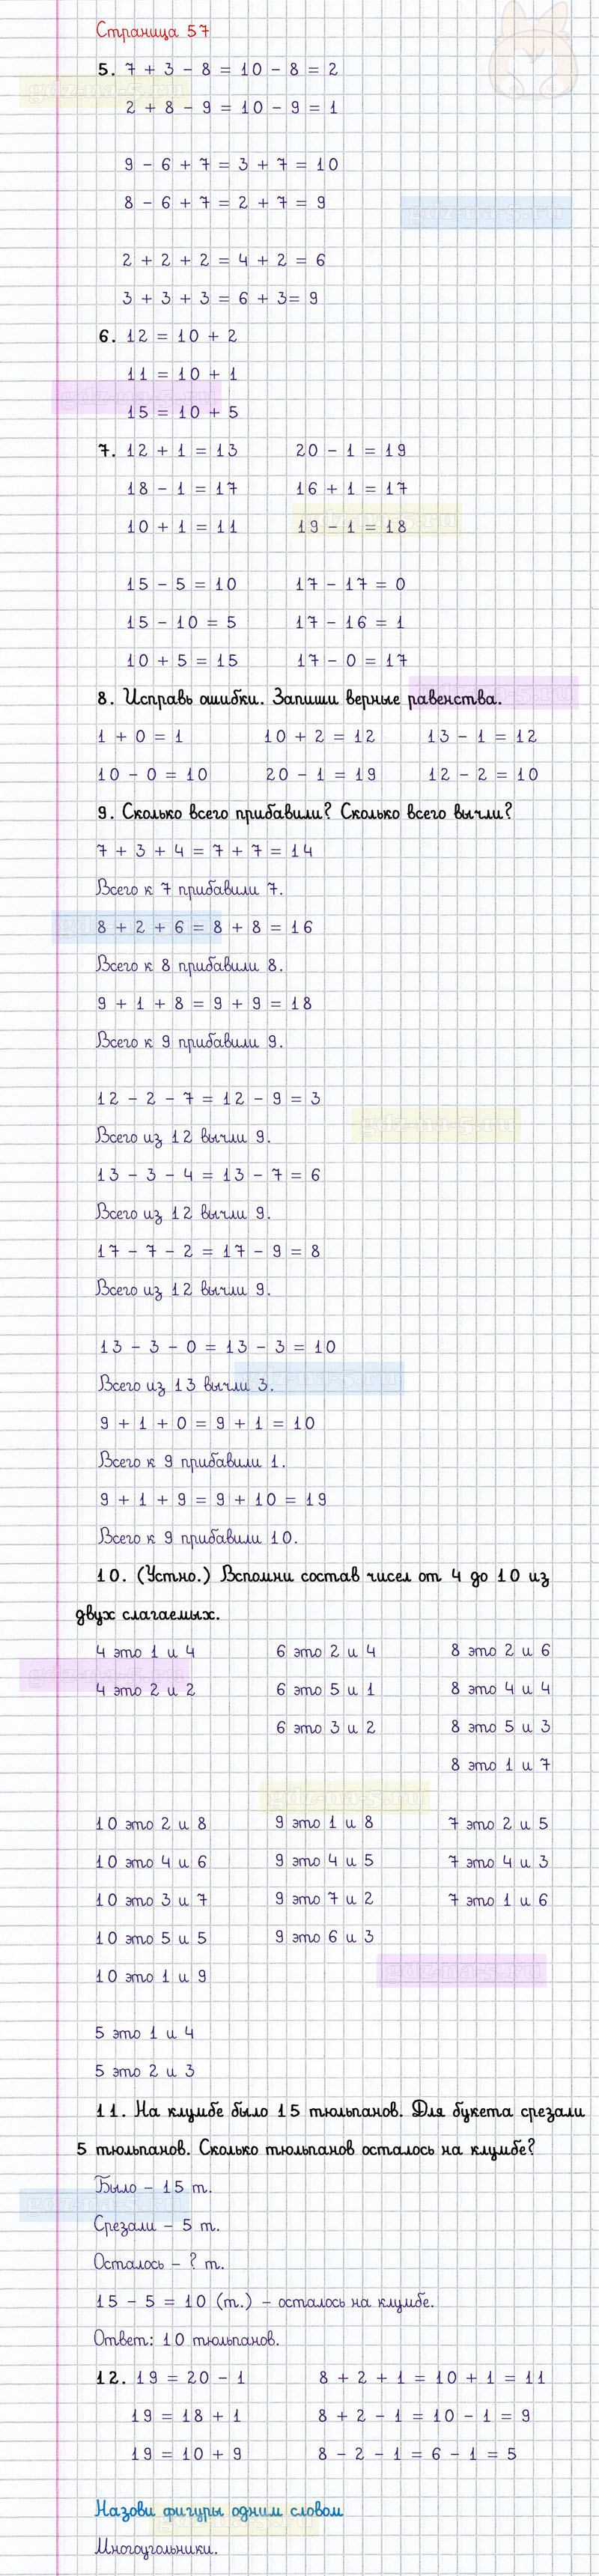 Страница 57
5. 7 + 3 - 8 = 10 - 8 = 2
gdz-na-5.ru
2 + 8 - 9 = 10 - 9 = 1
9 - 6 + 7 = 3 + 7 = 10
8 - 6 + 7 = 2 + 7 = 9
gdz-na-5.ru
2 + 2 + 2 = 4 + 2 = 6
3 + 3 + 3 = 6 + 3= 9
6. 12 = 10 + 2
11 = 10 + 1
gdz-na-5.ru
15 = 10 + 5
7. 12 + 1 = 13 20 - 1 = 19
18 - 1 = 17 16 + 1 = 17
gdz-na-5.ru
10 + 1 = 11 19 - 1 = 18
15 - 5 = 10 17 - 17 = 0
15 - 10 = 5 17 - 16 = 1
10 + 5 = 15 17 - 0 = 17
8. Исправь ошибки. Запиши верные равенства.
gdz-na-5.ru
1 + 0 = 1 10 + 2 = 12 13 - 1 = 12
10 - 0 = 10 20 - 1 = 19 12 - 2 = 10
9. Сколько всего прибавили? Сколько всего вычли?
7 + 3 + 4 = 7 + 7 = 14
Всего к 7 прибавили 7.
8 + 2 + 6 = 8 + 8 = 16
gdz-na-5.ru
Всего к 8 прибавили 8.
9 + 1 + 8 = 9 + 9 = 18
Всего к 9 прибавили 9.
12 - 2 - 7 = 12 - 9 = 3
gdz-na-5.ru
Всего из 12 вычли 9.
13 - 3 - 4 = 13 - 7 = 6
Всего из 12 вычли 9.
17 - 7 - 2 = 17 - 9 = 8
Всего из 12 вычли 9.
13 - 3 - 0 = 13 - 3 = 10
gdz-na-5.ru
Всего из 13 вычли 3.
9 + 1 + 0 = 9 + 1 = 10
Всего к 9 прибавили 1.
9 + 1 + 9 = 9 + 10 = 19
Всего к 9 прибавили 10.
10. (Устно.) Вспомни состав чисел от 4 до 10 из
двух слагаемых.
4 это 1 и 4 6 это 2 и 4 8 это 2 и 6
gdz-na-5.ru
4 это 2 и 2 6 это 5 и 1 8 это 4 и 4
6 это 3 и 2 8 это 5 и 3
8 это 1 и 7
gdz-na-5.ru
10 это 2 и 8 9 это 1 и 8 7 это 2 и 5
10 это 4 и 6 9 это 4 и 5 7 это 4 и 3
10 это 3 и 7 9 это 7 и 2 7 это 1 и 6
10 это 5 и 5 9 это 6 и 3
gdz-na-5.ru
10 это 1 и 9
5 это 1 и 4
5 это 2 и 3
11. На клумбе было 15 тюльпанов. Для букета срезали
5 тюльпанов. Сколько тюльпанов осталось на клумбе?
Было - 15 т.
gdz-na-5.ru
Срезали - 5 т.
Осталось - ? т.
15 - 5 = 10 (т.) - осталось на клумбе.
Ответ: 10 тюльпанов.
12. 19 = 20 - 1 8 + 2 + 1 = 10 + 1 = 11
19 = 18 + 1 8 + 2 - 1 = 10 - 1 = 9
19 = 10 + 9 8 - 2 - 1 = 6 - 1 = 5
Назови фигуры одним словом
gdz-na-5.ru
Многоугольники.